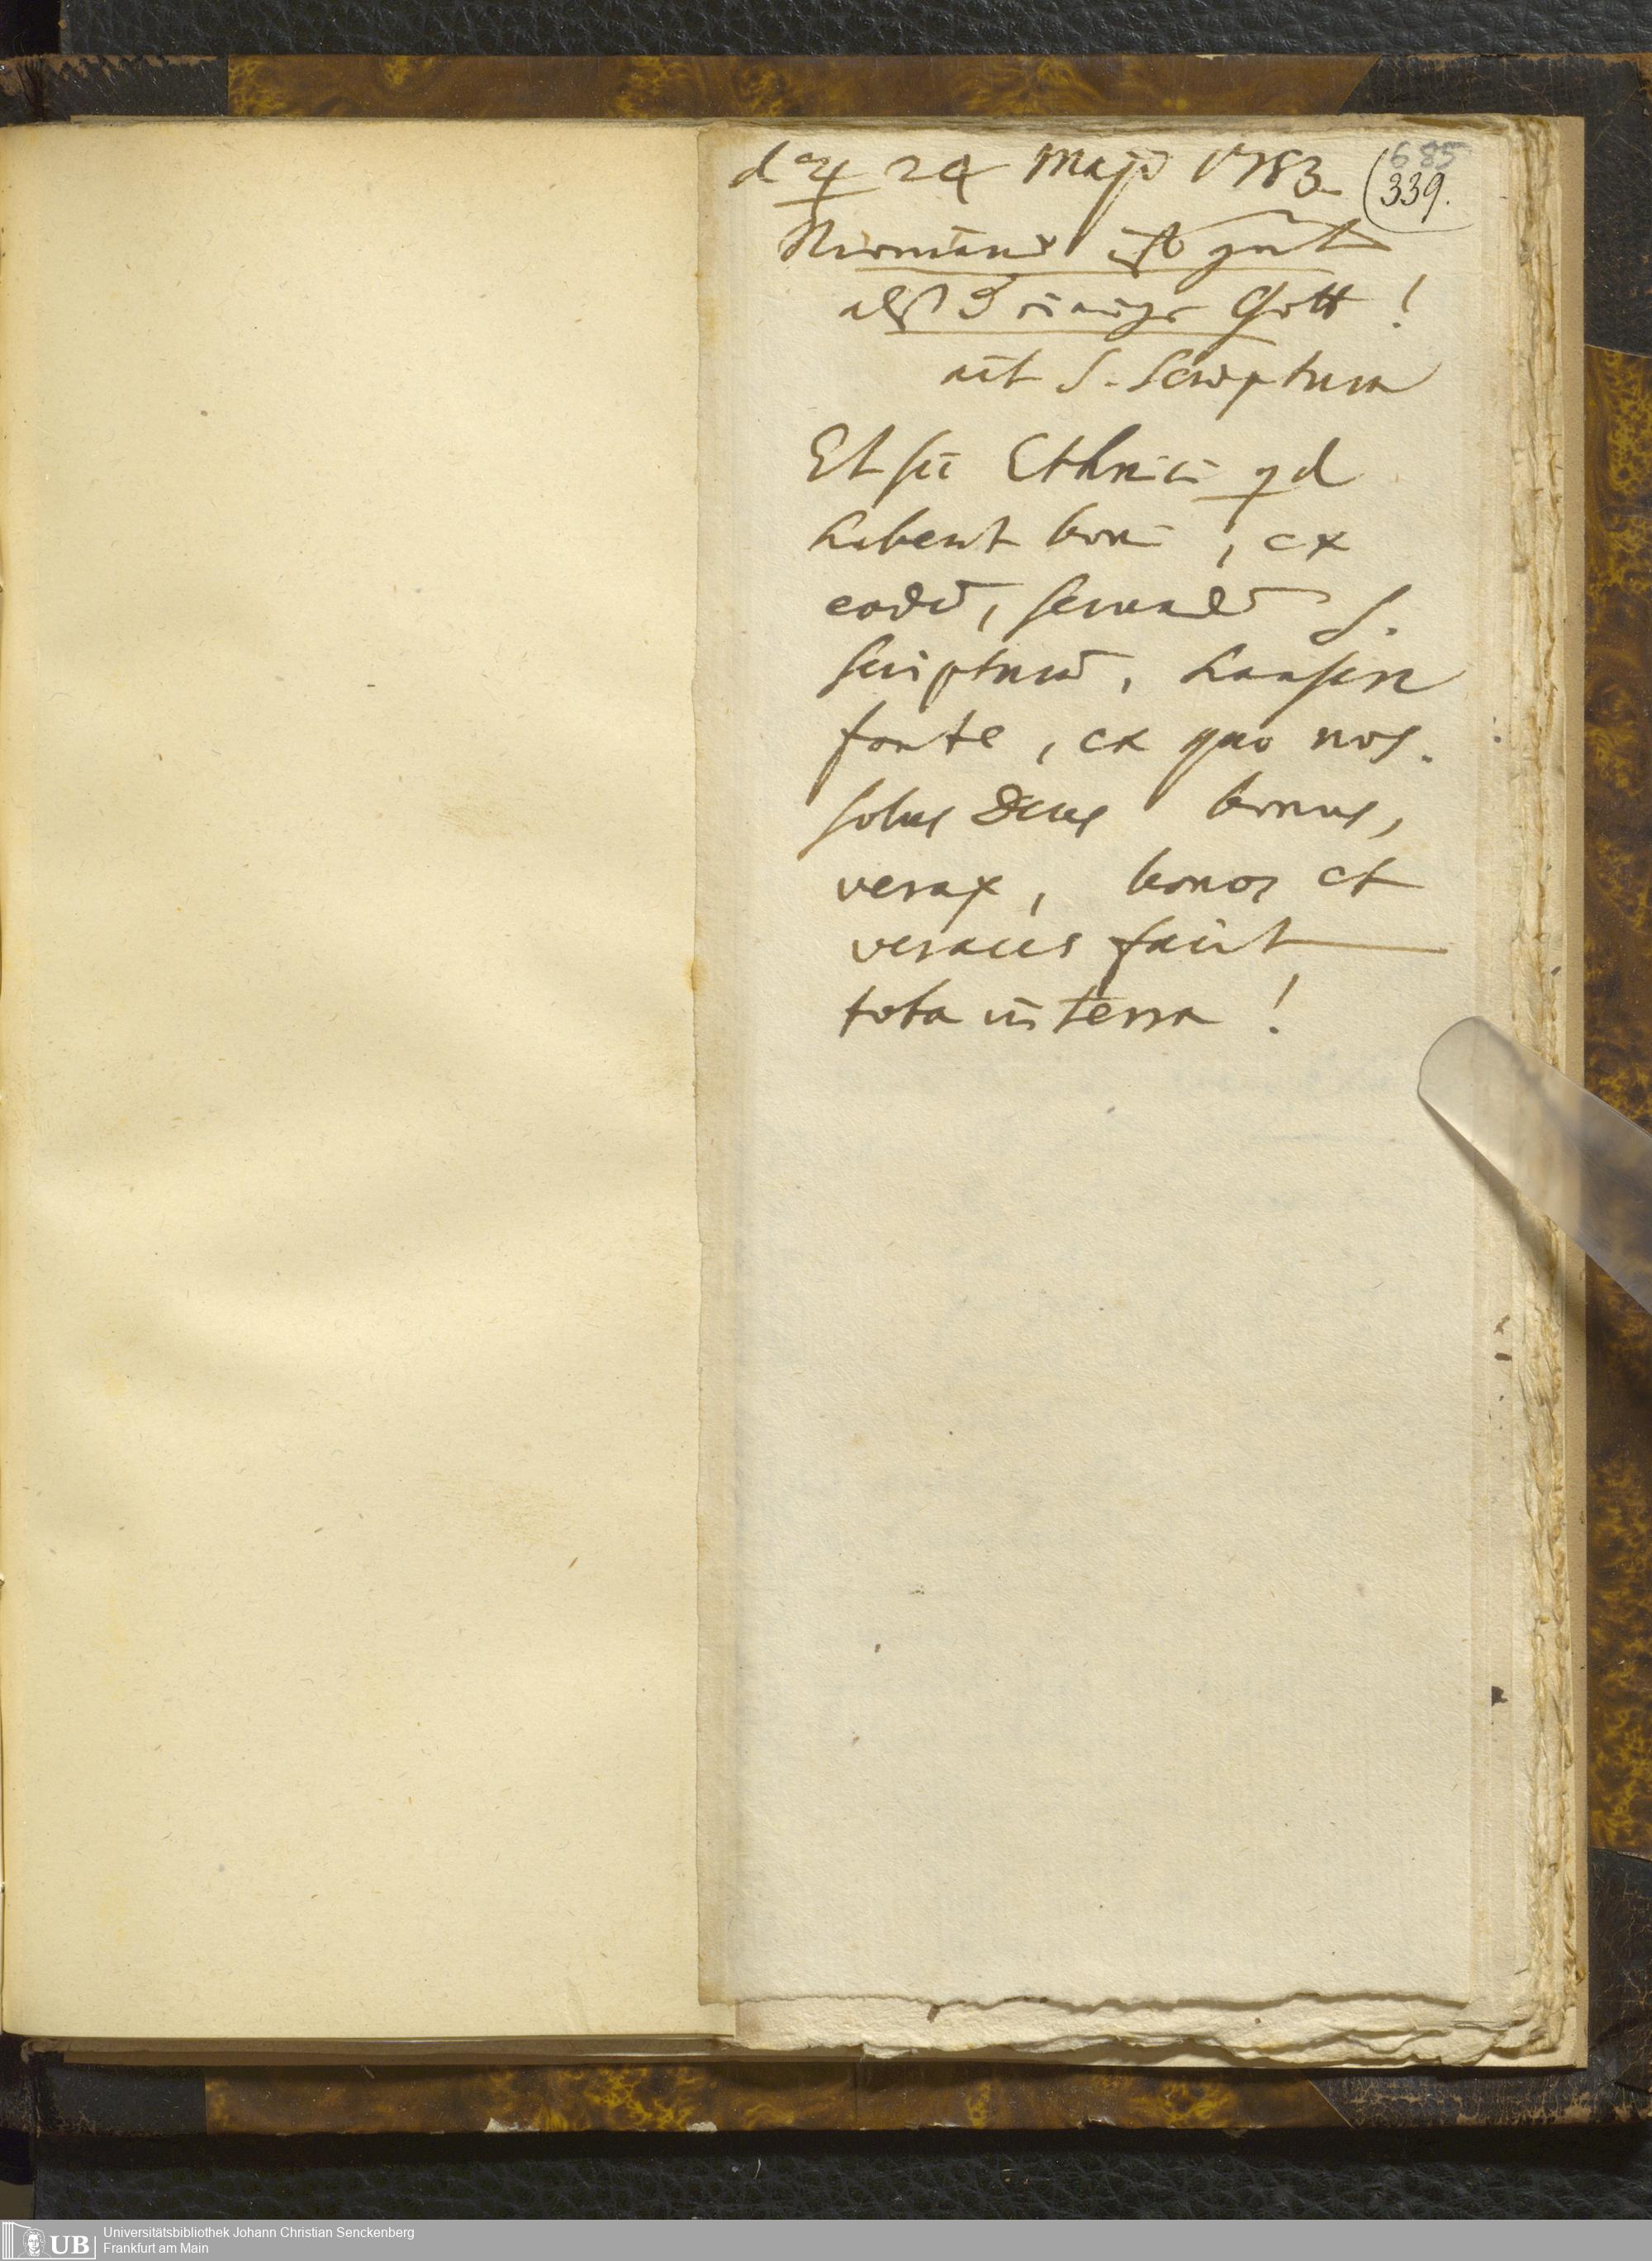 d. ♃ 24 Maji 1753
685
339.
Niemand ist gut
als d einige Gott!
ait S. Scriptura
Et sic Ethnici qd
habent boni, ex
eodē, secundū S.
Scripturā, hauserē
fonte, ex quo nos.
Solus Deus bonus,
verax, bonos et
veraces facit
tota in terra!
UB
Universitätsbibliothek Johann Christian Senckenberg
Frankfurt am Main